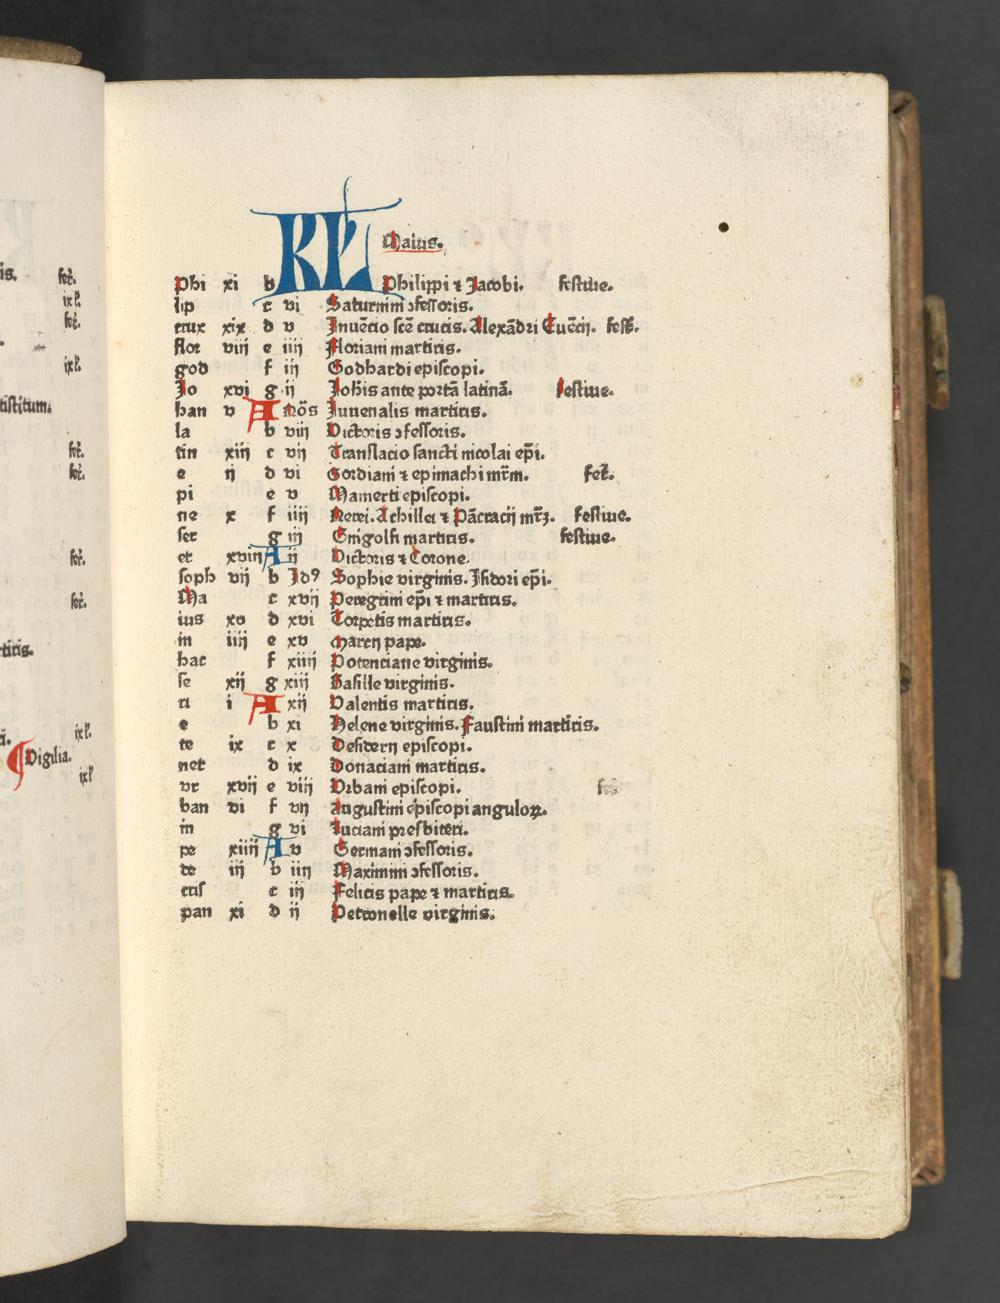 is. feſt̄.
ix l'.
feſt̄.
ix l'.
tiſtitum.
feſt̄.
feſt̄.
feſt̄.
feſt̄.
rtiris.
ix l'.
Vigilia.
ix l'
KL Maius.
Phi xi b Philippi ⁊ Jacobi. feſtiue.
lip c vi Saturnini ɔfeſſoris.
crux xix d v Inuētio ſcē crucis. Alexādri Euētij. feſt̄.
flor viij e iiij Floriani martiris.
god f iij Godhardi epiſcopi.
Jo xvi g ij Johīs ante portā latinā. feſtiue.
han v A nōs Iuuenalis martiris.
la b viij Victoris ɔfeſſoris.
tin xiij c vij Tranſlacio ſancti nicolai ep̄i.
e ij d vi Gordiani ⁊ epimachi mr̄m. feſt̄.
pi e v Mamerti epiſcopi.
ne x f iiij Nerei. Achillei ⁊ Pācracij mr̄ꝫ. feſtiue.
ſer g iij Gingolfi martiris. feſtiue.
et xviij A ij Victoris ⁊ Corone.
ſoph vij b Idꝰ Sophie virginis. Iſidori ep̄i.
Ma c xvij Peregrini ep̄i ⁊ martiris.
ius xv d xvi Torpetis martiris.
in iiij e xv Marcij pape.
hac f xiiij Potenciane virginis.
ſe xij g xiij Baſille virginis.
ri i A xij Valentis martiris.
e b xi Helene virginis. Fauſtini martiris.
te ix c x Deſiderij epiſcopi.
net d ix Donaciani martiris.
vr xvij e viij Vrbani epiſcopi. feſt̄.
ban vi f vij Auguſtini epiſcopi anguloꝝ.
in g vi Luciani preſbiteri.
pe xiiij A v Germani ɔfeſſoris.
de iij b iiij Maximini ɔfeſſoris.
criſ c iij Felicis pape ⁊ martiris.
pan xi d ij Petronelle virginis.